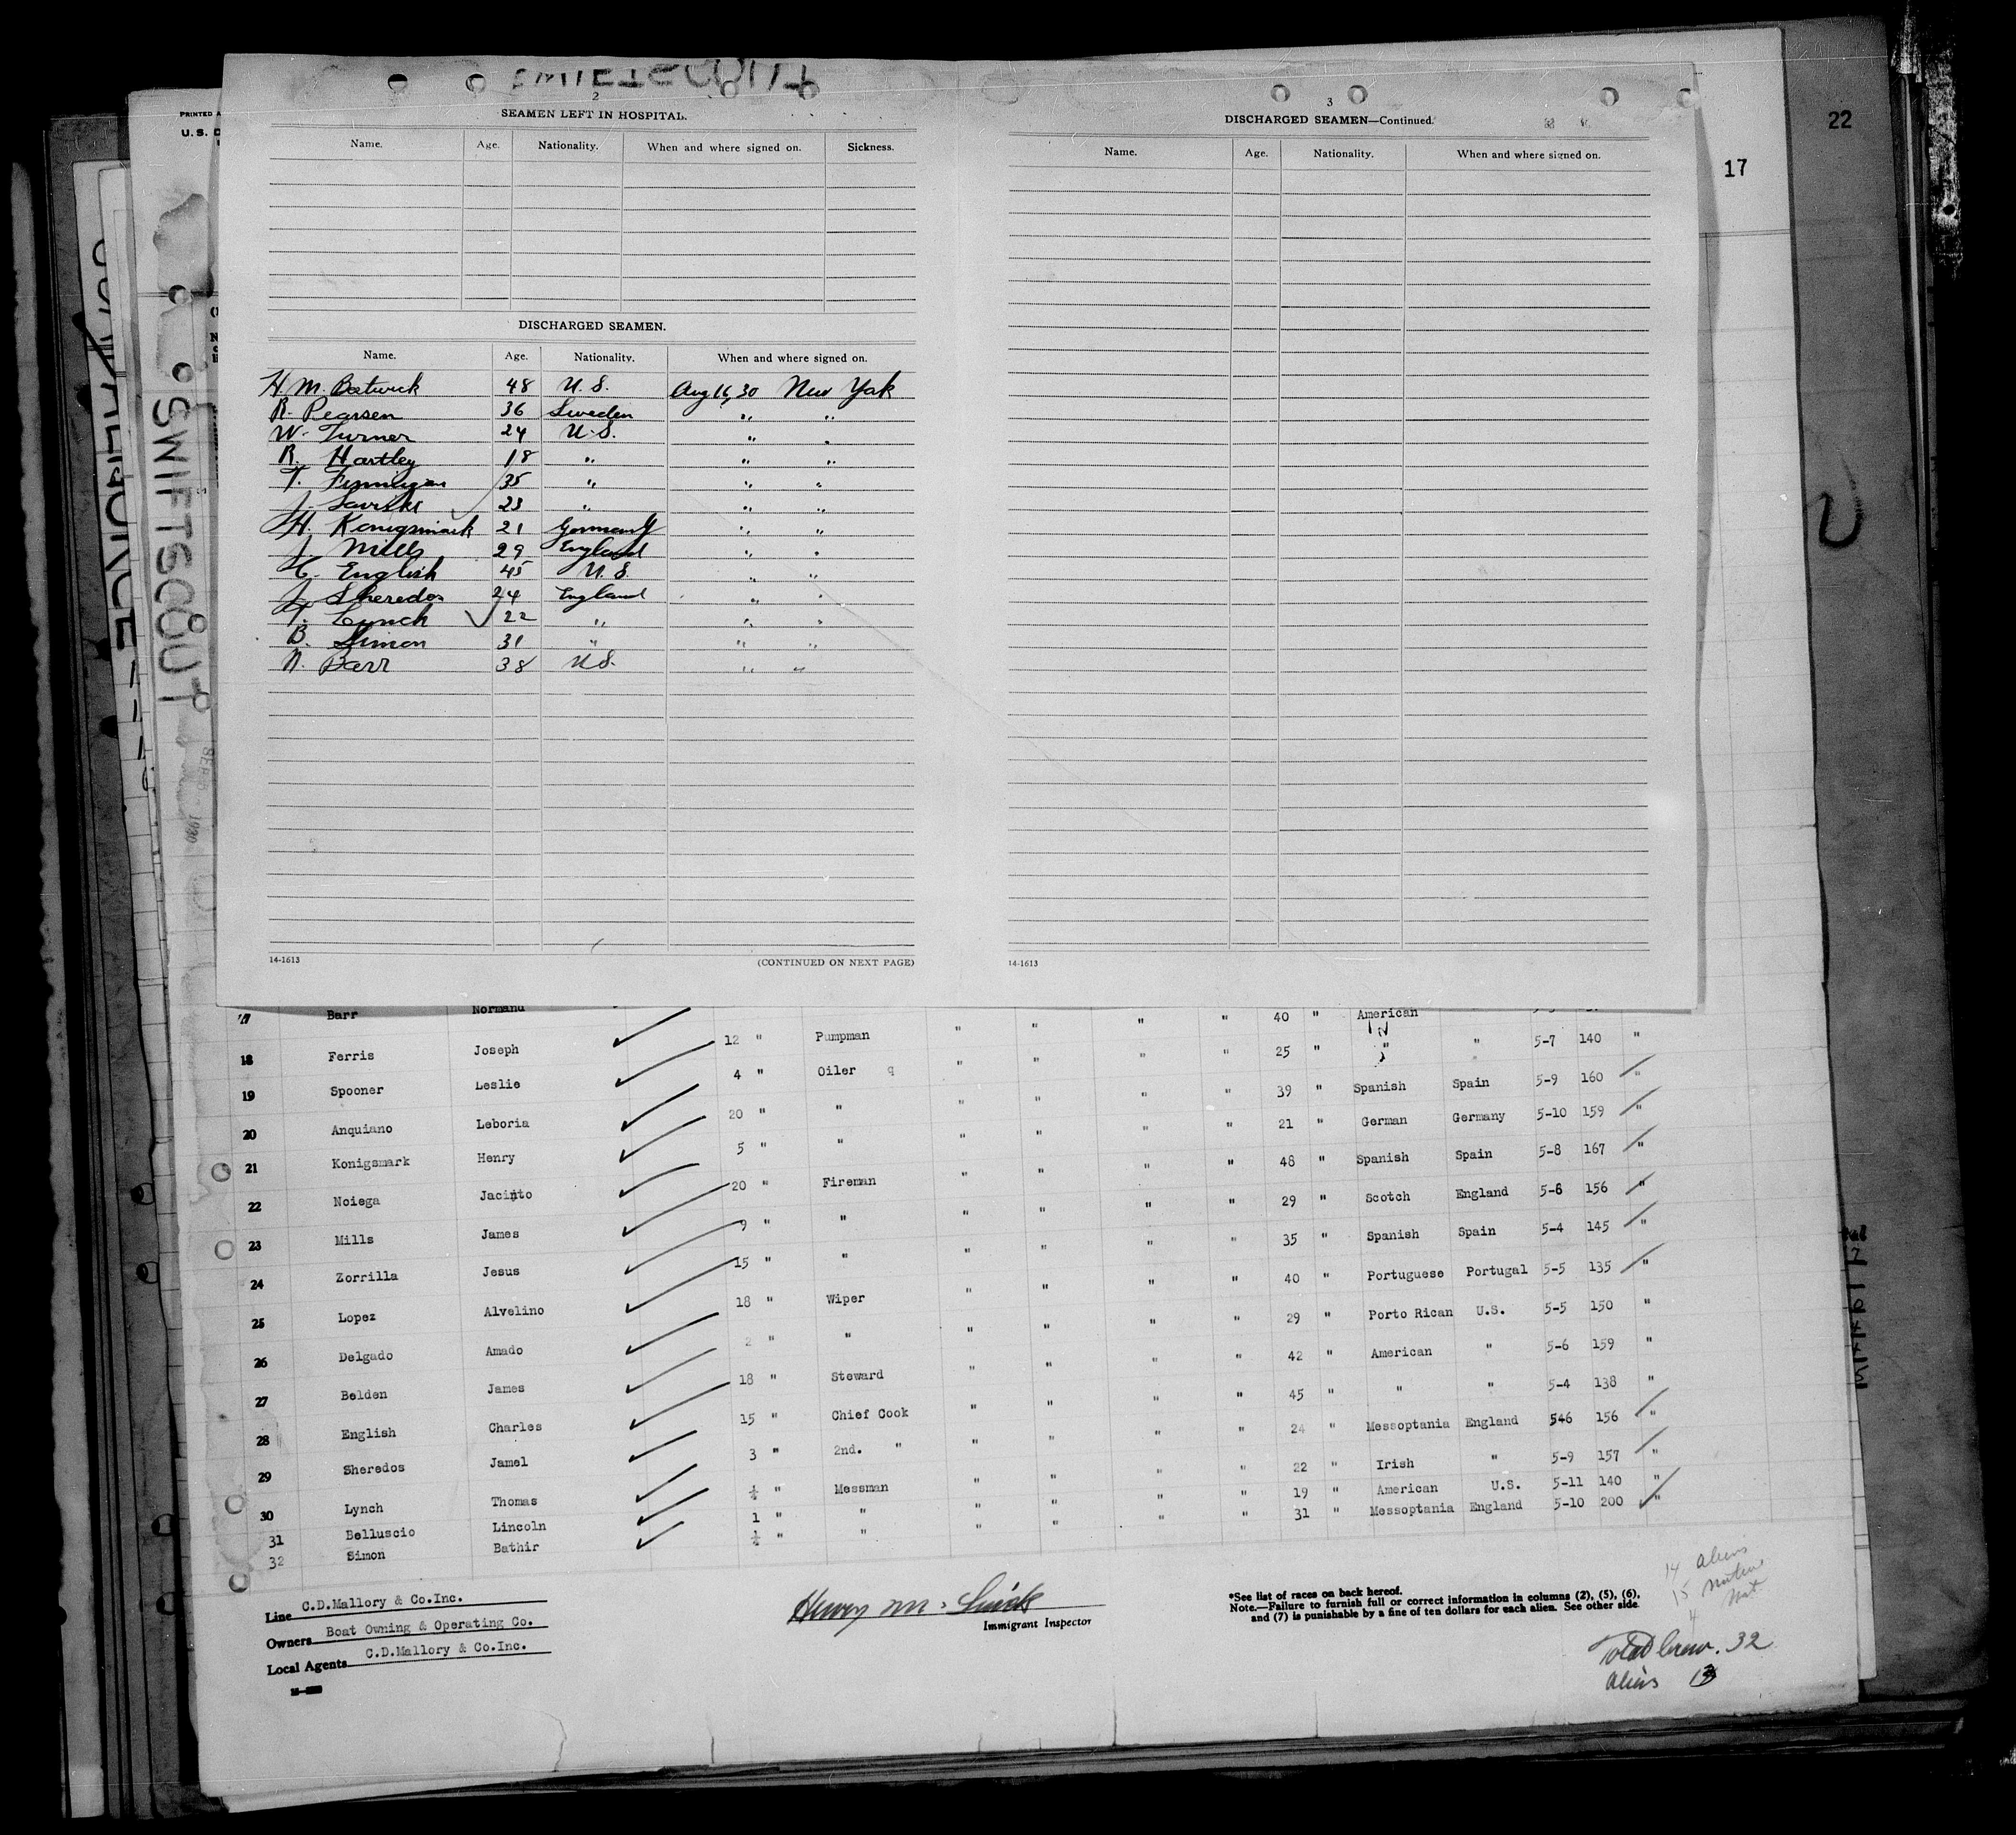 22
17
PRINTED
U. S. D
SWIFTSCOUT
SEP 1930
2
SEAMEN LEFT IN HOSPITAL.
Name. Age. Nationality. When and where signed on. Sickness.
DISCHARGED SEAMEN.
Name. Age. Nationality. When and where signed on.
H. M. 48 U.S. Aug 16, 30 New York
R. Pearsen 36 Sweden " "
W. Turner 24 U.S. " "
R. Hartley 18 " " "
T. Finnigan 35 " " "
J. 23 " " "
H. Konigsmark 21 Germany " "
J. Mills 29 England " "
C. English 45 U.S. " "
J. Sheredos 24 England " "
T. Lynch 22 " " "
B. Simon 31 " " "
N. Barr 38 U.S. " "
14-1613 (CONTINUED ON NEXT PAGE)
3
DISCHARGED SEAMEN—Continued.
Name. Age. Nationality. When and where signed on.
14-1613
17 Barr Normand 12 " Pumpman " " " " 40 " American
18 Ferris Joseph 4 " Oiler " " " " 25 " " " 5-7 140 "
19 Spooner Leslie 20 " " " " " " 39 " Spanish Spain 5-9 160 "
20 Anquiano Leboria 5 " " " " " " 21 " German Germany 5-10 159 "
21 Konigsmark Henry 20 " Fireman " " " " 48 " Spanish Spain 5-8 167 "
22 Noiega Jacinto 9 " " " " " " 29 " Scotch England 5-6 156 "
23 Mills James 15 " " " " " " 35 " Spanish Spain 5-4 145 "
24 Zorrilla Jesus 18 " Wiper " " " " 40 " Portuguese Portugal 5-5 135 "
25 Lopez Alvelino 2 " " " " " " 29 " Porto Rican U.S. 5-5 150 "
26 Delgado Amado 18 " Steward " " " " 42 " American " 5-6 159 "
27 Belden James 15 " Chief Cook " " " " 45 " " " 5-4 138 "
28 English Charles 3 " 2nd. " " " " " 24 " Messoptania England 546 156 "
29 Sheredos Jamel ½ " Messman " " " " 22 " Irish " 5-9 157 "
30 Lynch Thomas 1 " " " " " " 19 " American U.S. 5-11 140 "
31 Belluscio Lincoln ½ " " " " " " 31 " Messoptania England 5-10 200 "
32 Simon Bathir
Line C.D.Mallory & Co.Inc.
Owners Boat Owning & Operating Co.
Local Agents C.D.Mallory & Co.Inc.
Henry M.
Immigrant Inspector
*See list of races on back hereof.
Note.—Failure to furnish full or correct information in columns (2), (5), (6),
and (7) is punishable by a fine of ten dollars for each alien. See other side.
14 Aliens
15 Native
4 Nat.
Total Crew. 32
Aliens 13